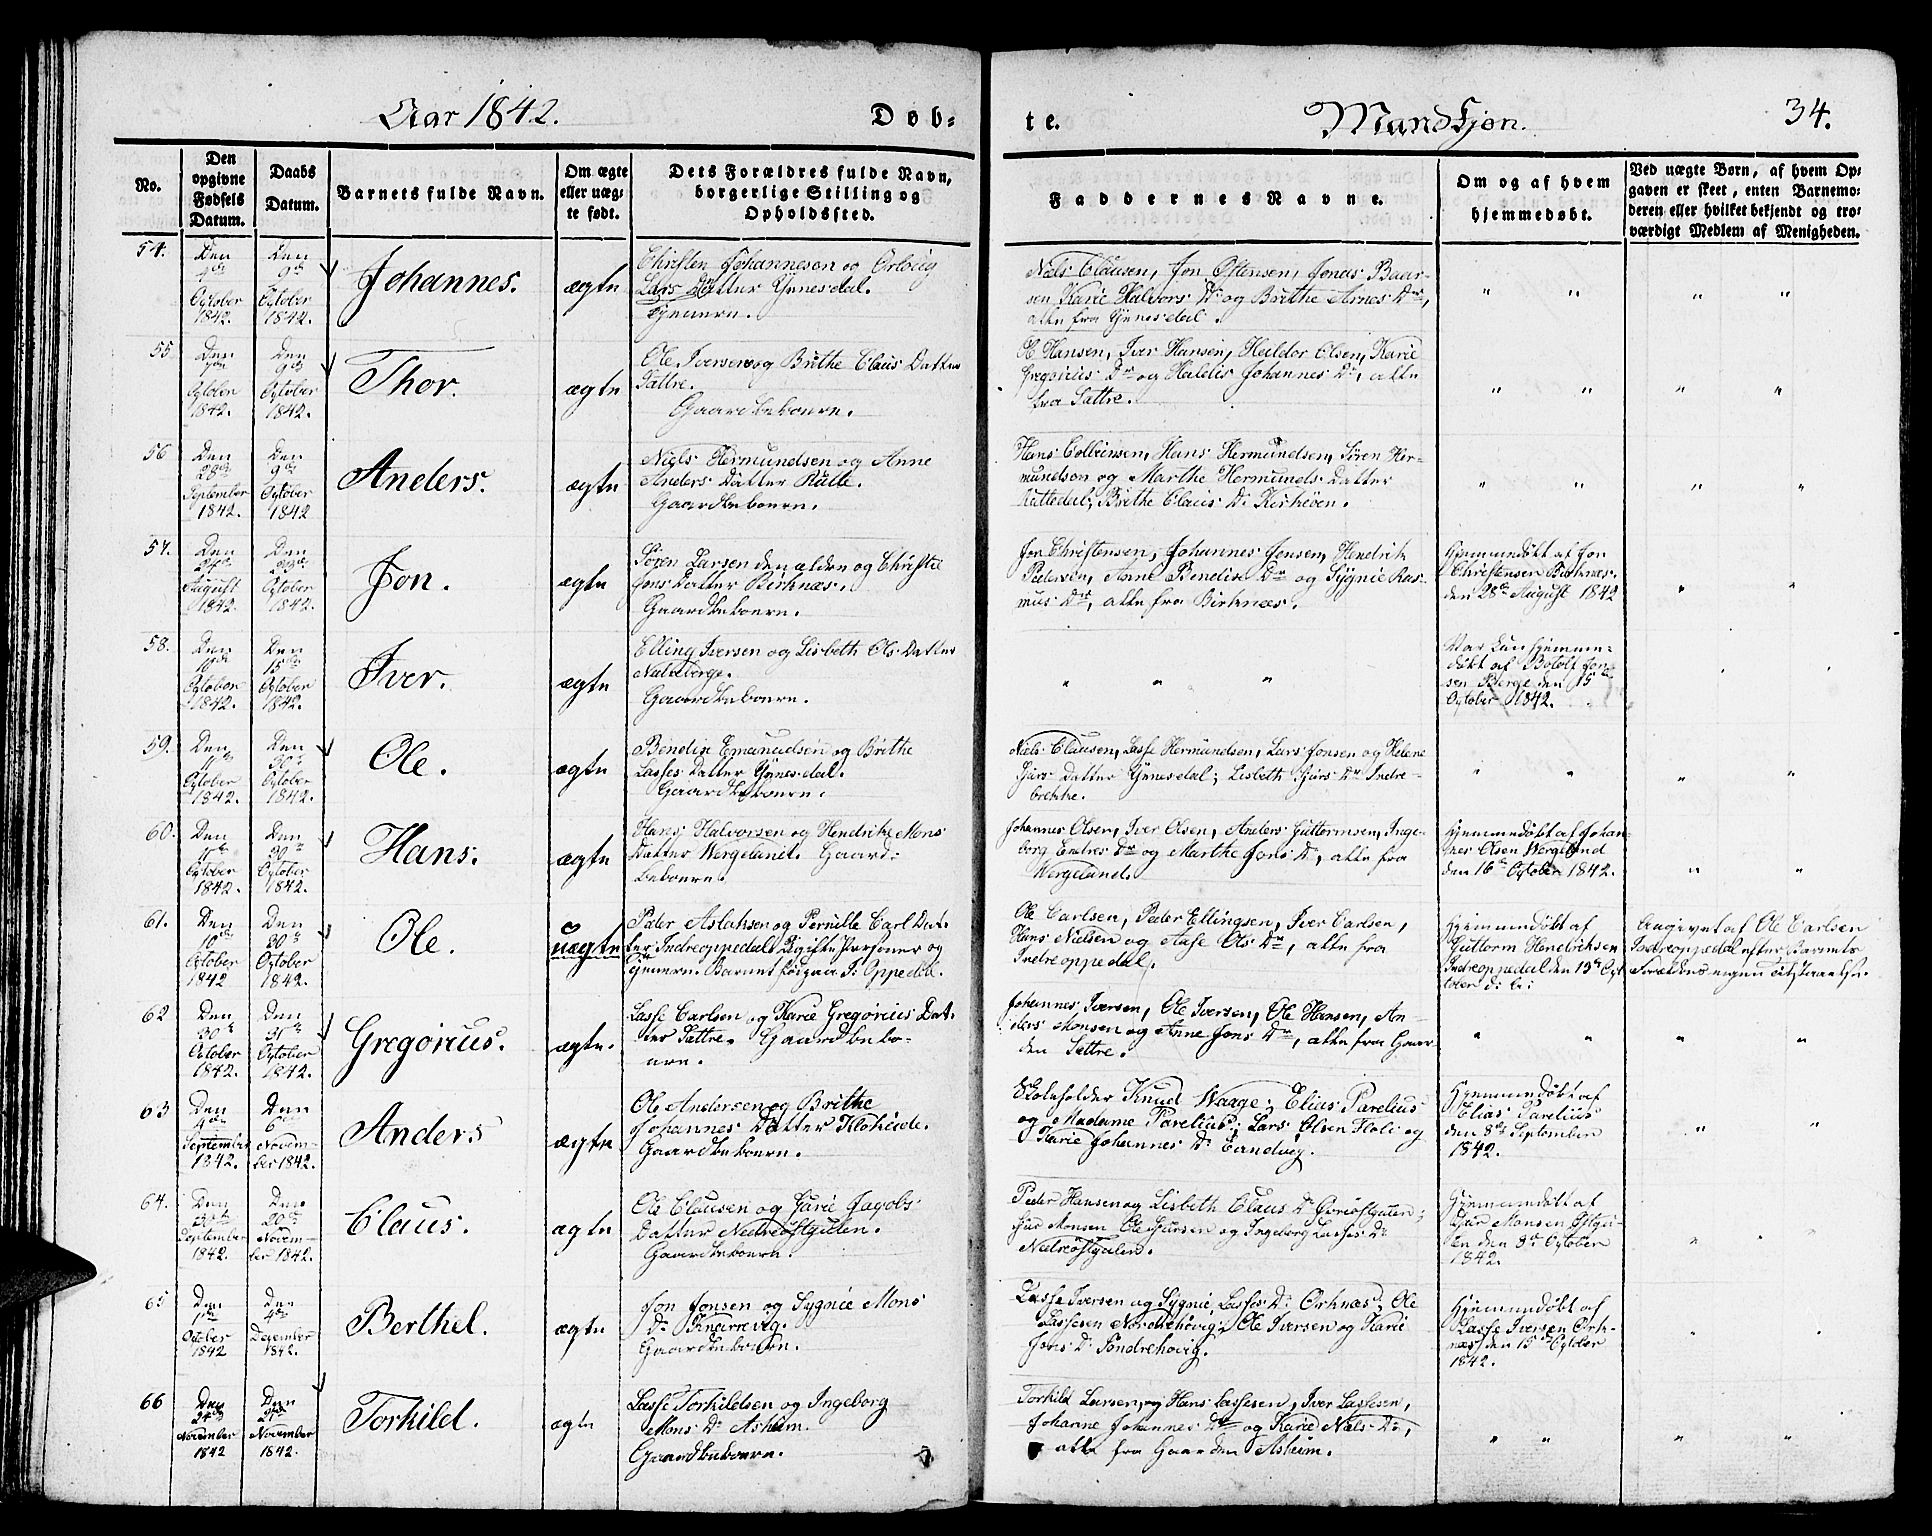 Aar 1842.
Døb-
te.
Mandkjøn.
34.
No.
Den
opgivne
Fødsels
Datum.
Daabs
Datum.
Barnets fulde Navn.
Om ægte
eller uæg-
te født.
Dets Forældres fulde Navn,
borgerlige Stilling og
Opholdssted.
Faddernes Navne.
Om og af hvem
hjemmedøbt.
Ved uægte Børn, af hvem Op-
gaven er skeet, enten Barnemo-
deren eller hvilket bekjendt og tro-
værdigt Medlem af Menigheden.
54.
Den
4de
October
1842.
Den
9de
October
1842.
Johannes.
ægte
Christen Johannesen og
Lars Datter Ynnesdal.
Niels Clausen, Jon Ottensen, Jonas Baar-
sen Karie Halvors Dr og Brithe Arnes Dr,
alle fra Ynnesdal.
55
Den
October
1842.
Den
9de
October
1842.
Thor.
ægte
Ole Iversen og Brithe Claus Datter
Sættre.
Gaardbeboere.
Ole Hansen, Iver Hansen, Haldor Olsen, Karie
Gregorius Dr og Haldis Johannes Dr, alle
fra Sættre.
56
Den
28de
September
1842.
Den
9de
October
1842
Anders.
ægte
Niels Hermundsen og Anne
Anders Datter Rutle.
Gaardbeboere.
Hans Hans Hermundsen, Søren Her-
mundsen og Marthe Hermunds Datter
Brithe Claus Dr
57.
Den
24de
August
1842.
Den
October
1842.
Jon.
ægte
Søren Larsen den ælden og Christie
Jons Datter Birknæs.
Gaardbeboere.
Jon Christensen, Johannes Jensen, Hendrik
Pedersen, Anne Bendix Dr og Sygnie Ras-
mus Dr, alle fra Birknæs.
Hjemmedøbt af Jon
Christensen Birknæs.
den 28de August 1842
58.
Den
10de
October
1842.
Den
15de
October
1842.
Iver.
ægte
Elling Iversen og Lisbeth Ols Datter
Gaardbeboere.
Var kun hjemme-
døbt af Botolf Jon-
sen Berge den 15de
October 1842.
59.
Den
11te
October
1842.
Den
30te
October
1842.
Ole.
ægte
Bendix Emanuelsen og Brithe
Lasses Datter Ynnesdal.
Gaardbeboere.
Niels Clausen, Lasse Hermundsen, Lars Jonsen og Helene
Datter Ynnesdal; Lisbeth Dr Indre-
brekke.
60.
Den
11te
October
1842.
Den
30te
October
1842.
Hans.
ægte
Hans Halvorsen og Hendrikke Mons
Datter Wergeland. Gaard-
beboere.
Johannes Olsen, Iver Olsen, Anders Guttormsen, Inge-
borg Endres Dr og Marthe Jons Dr, alle fra
Wergeland.
Hjemmedøbt af Johan-
nes Olsen Wergeland
den 16de October 1842.
61.
Den
10de
October
1842
Den
30te
October
1842.
Ole.
uægte
Peder Aslaksen og Pernille Carl Dat-
ter Indreoppedal. Ugifte Personer og
Ole Carlsen, Peder Ellingsen, Iver Carlsen,
Hans Nielsen og Aase Ols Dr, alle fra
Indreoppedal.
Hjemmedøbt af
Guttorm Hendriksen
Indreoppedal den 15de Oc-
tober d: A:
Angivet af Ole Carlsen
Indreoppedal efter Barnets
Forældres egen
62
Den
30te
October
1842.
Den
31te
October
1842.
Gregorius.
ægte.
Lasse Carlsen og Karie Gregorius Dat-
ter Sættre. Gaardbebo-
ere.
Johannes Iversen, Ole Iversen, Ole Hansen, An-
ders Monsen og Anne Jons Dr, alle fra Gaar-
den Sættre.
63
Den
4de
September
1842.
Den
6te
Novem-
ber 1842.
Anders
ægte
Ole Andersen og Brithe
Johannes Datter
Gaardbeboere.
Skoleholder Knud Waage; Elias Parelius
og Madame Parelius; Lars Olsen Floli og
Karie Johannes Dr Evindvig.
Hjemmedøbt af
Elias Parelius
den 8de September
1842.
64.
Den
30te
September
1842.
Den
20de
Novem-
ber 1842.
Claus.
ægte
Ole Clausen og Karie Jacobs
Datter Nedreøstgulen.
Gaardbeboere.
Peder Hansen og Lisbeth Claus Dr Øvreøstgulen;
Gur Monsen Ole Gursen og Ingeborg Lasses Dr
Nedreøstgulen.
Hjemmedøbt af
Gur Monsen Østgu-
len den 3die October
1842.
65
Den
1ste
October
1842
Den
4de
December
1842.
Berthel.
ægte
Jon Jonsen og Sygnie Mons
Dr
Gaardbeboere.
Lasse Iversen og Sygnie Lasses Dr Orknæs; Ole
Lassesen Nordrehovig; Ole Iversen og Karie
Jons Dr Søndrehovig.
Hjemmedøbt af
Lasse Iversen Ork-
næs den 15de October
1842.
66
Den
24de
November
1842
Den
27de
November
1842.
Torkild.
ægte
Lasse Torkildsen og Ingeborg
Mons Dr Asheim.
Gaardbeboere.
Torkild Larsen og Hans Lassesen, Iver Lassesen,
Johanne Johannes Dr og Karie Niels Dr,
alle fra Gaarden Asheim.